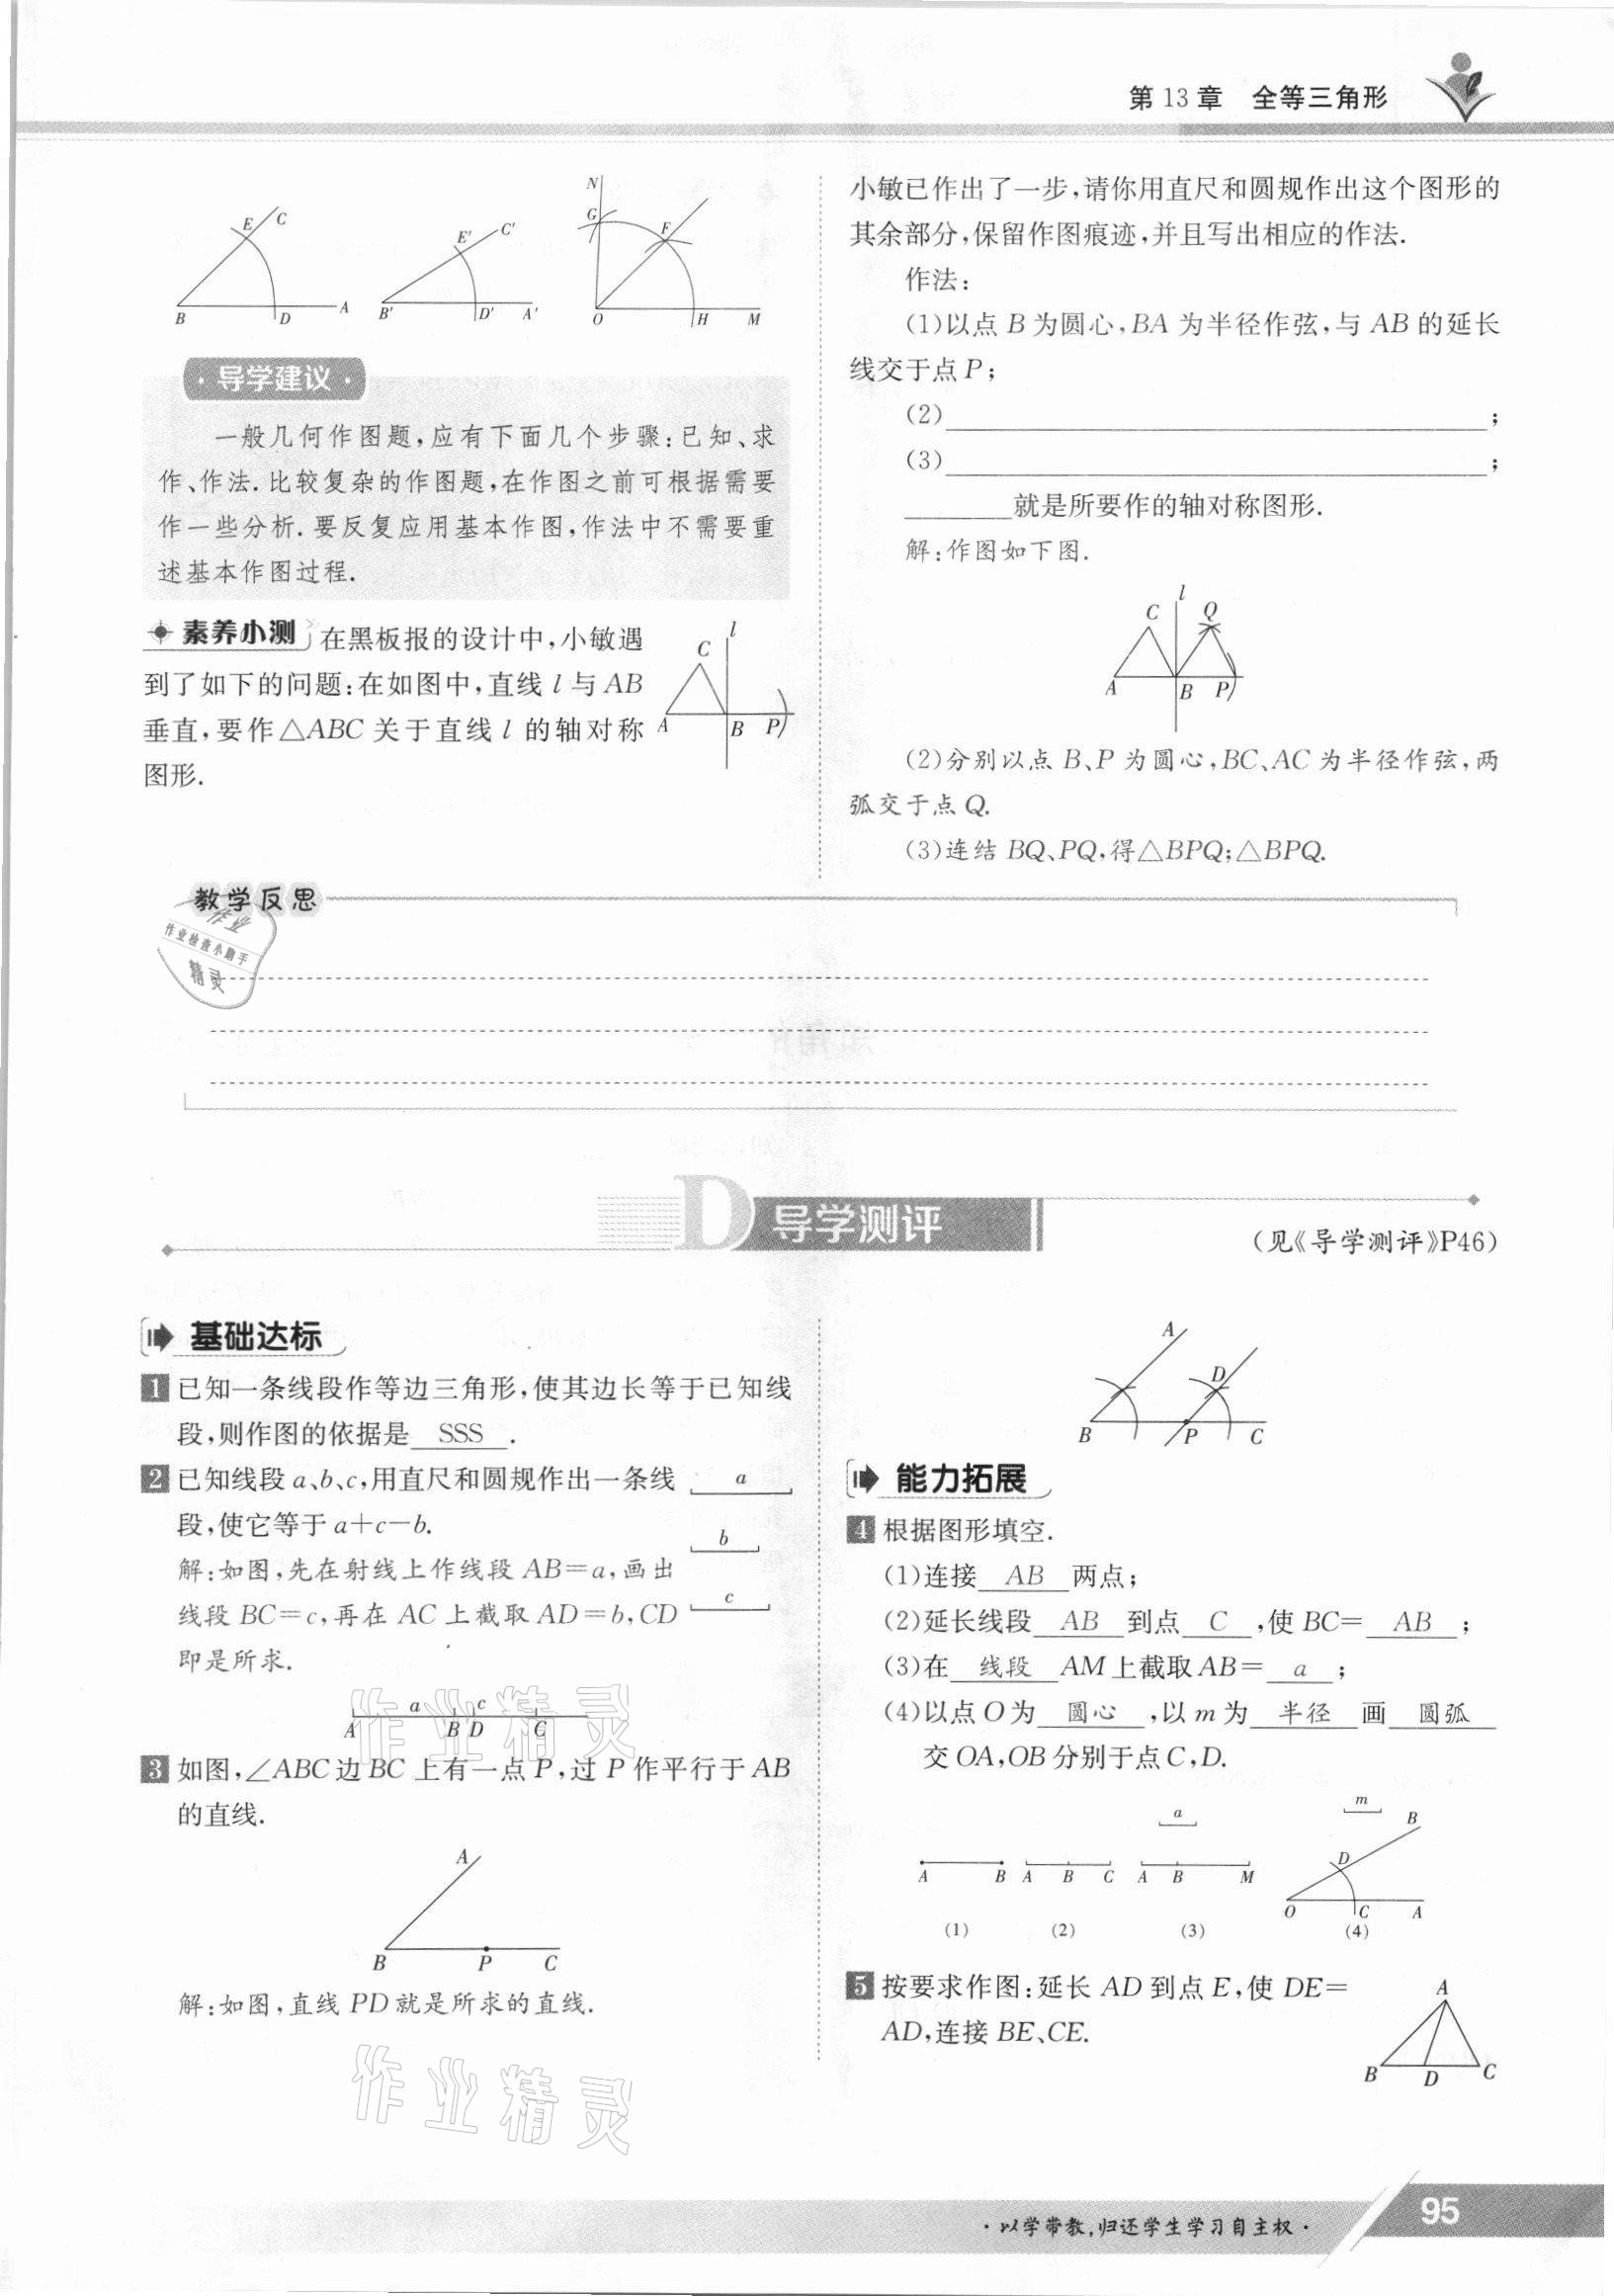 第 13 章　全等三角形
E C
B D A
E′ C′
B′ D′ A′
N
G F
O H M
·导学建议·
一般几何作图题,应有下面几个步骤:已知、求
作、作法.比较复杂的作图题,在作图之前可根据需要
作一些分析.要反复应用基本作图,作法中不需要重
述基本作图过程.
素养小测 在黑板报的设计中,小敏遇
到了如下的问题:在如图中,直线 l 与 AB
垂直,要作△ABC 关于直线 l 的轴对称
图形.
l
C
A B P
小敏已作出了一步,请你用直尺和圆规作出这个图形的
其余部分,保留作图痕迹,并且写出相应的作法.
作法:
(1)以点 B 为圆心,BA 为半径作弦,与 AB 的延长
线交于点 P;
(2)________;
(3)________;
________就是所要作的轴对称图形.
解:作图如下图.
l
C Q
A B P
(2)分别以点 B、P 为圆心,BC、AC 为半径作弦,两
弧交于点 Q.
(3)连结 BQ、PQ,得△BPQ;△BPQ.
教学反思
作业
作业检查小助手
精灵
D 导学测评
(见《导学测评》P46)
基础达标
1 已知一条线段作等边三角形,使其边长等于已知线
段,则作图的依据是 SSS .
2 已知线段 a、b、c,用直尺和圆规作出一条线
段,使它等于 a+c-b.
解:如图,先在射线上作线段 AB=a,画出
线段 BC=c,再在 AC 上截取 AD=b,CD
即是所求.
a
b
c
a c
A B D C
作业精灵
3 如图,∠ABC 边 BC 上有一点 P,过 P 作平行于 AB
的直线.
A
B P C
解:如图,直线 PD 就是所求的直线.
作业精灵
A
D
B P C
能力拓展
4 根据图形填空.
(1)连接 AB 两点;
(2)延长线段 AB 到点 C ,使 BC= AB ;
(3)在 线段 AM 上截取 AB= a ;
(4)以点 O 为 圆心 ,以 m 为 半径 画 圆弧
交 OA,OB 分别于点 C,D.
a m
B
D
A B A B C A B M O C A
(1) (2) (3) (4)
5 按要求作图:延长 AD 到点 E,使 DE=
AD,连接 BE、CE.
A
B D C
·以学带教,归还学生学习自主权·
95